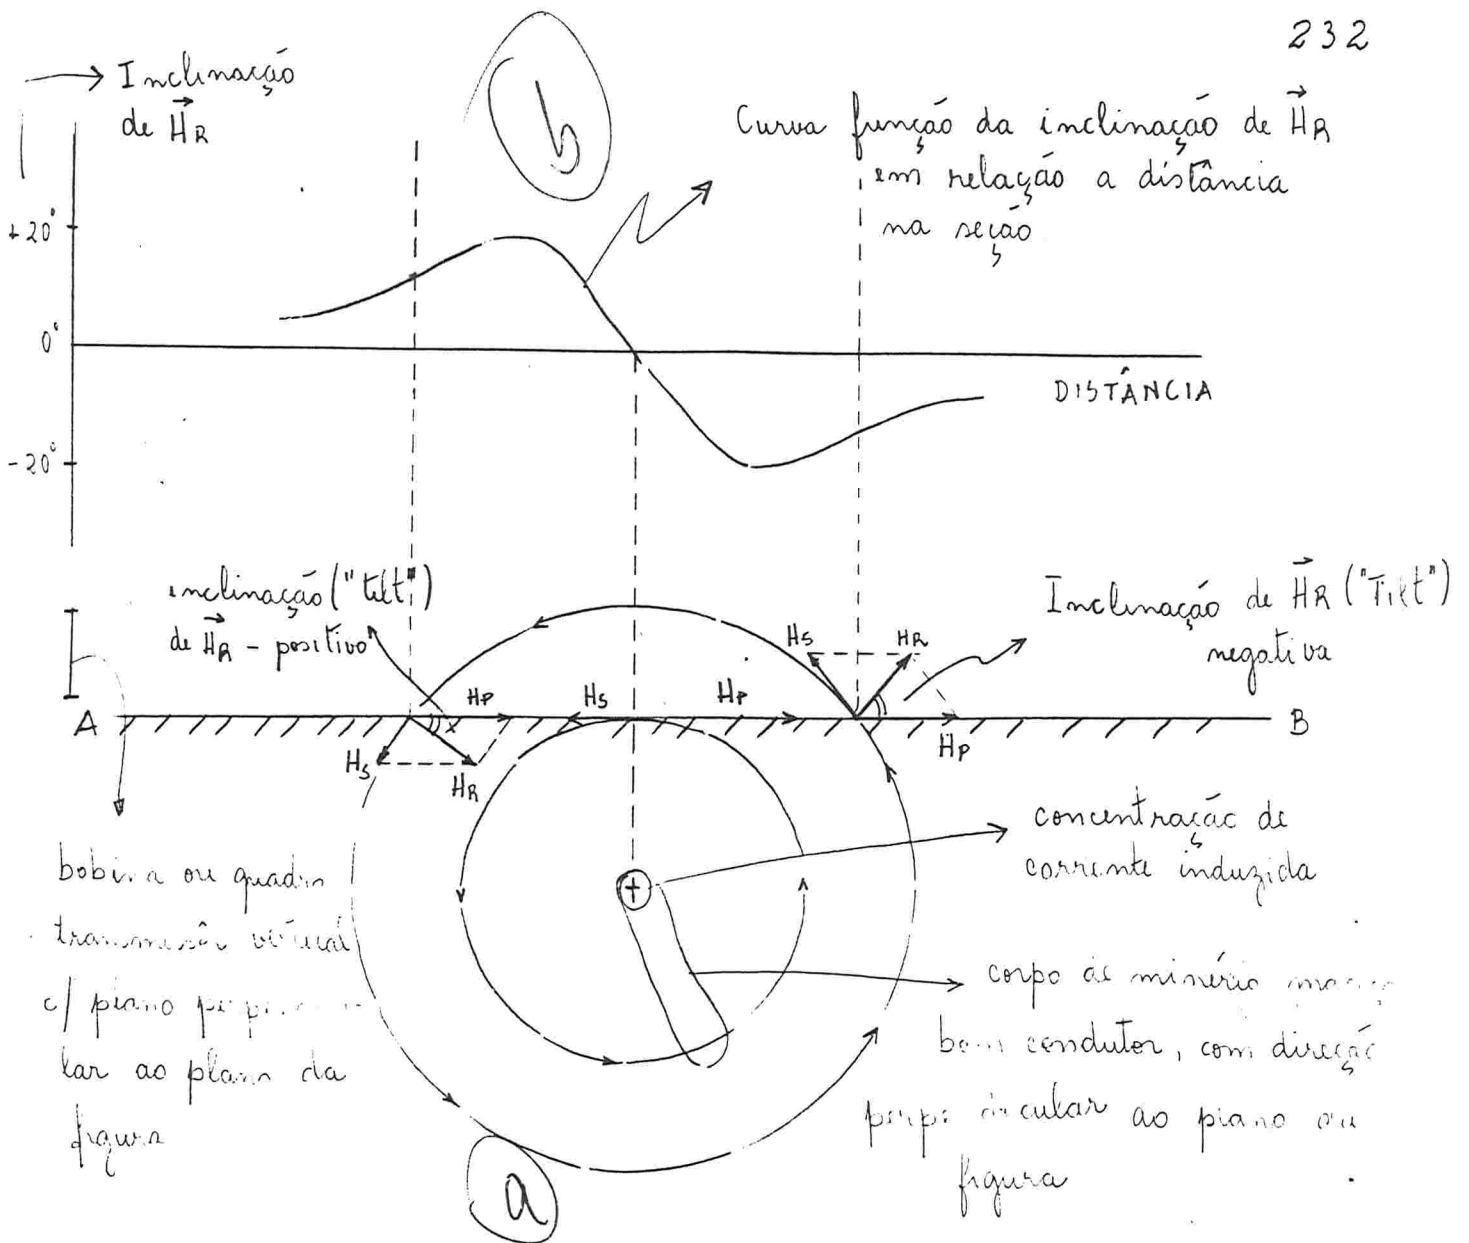 232
Inclinação
de HR
b
Curva função da inclinação de HR
em relação a distância
na seção
+20°
0°
-20°
DISTÂNCIA
inclinação ("tilt")
de HR - positivo
Inclinação de HR ("Tilt")
negativa
HS
HR
HP
HS
HP
A
B
HS
HR
HP
concentração de
corrente induzida
+
bobina ou quadro
vertical
c/ plano
lar ao plano da
figura
corpo de minério
bom condutor, com direção
ao plano
figura
a